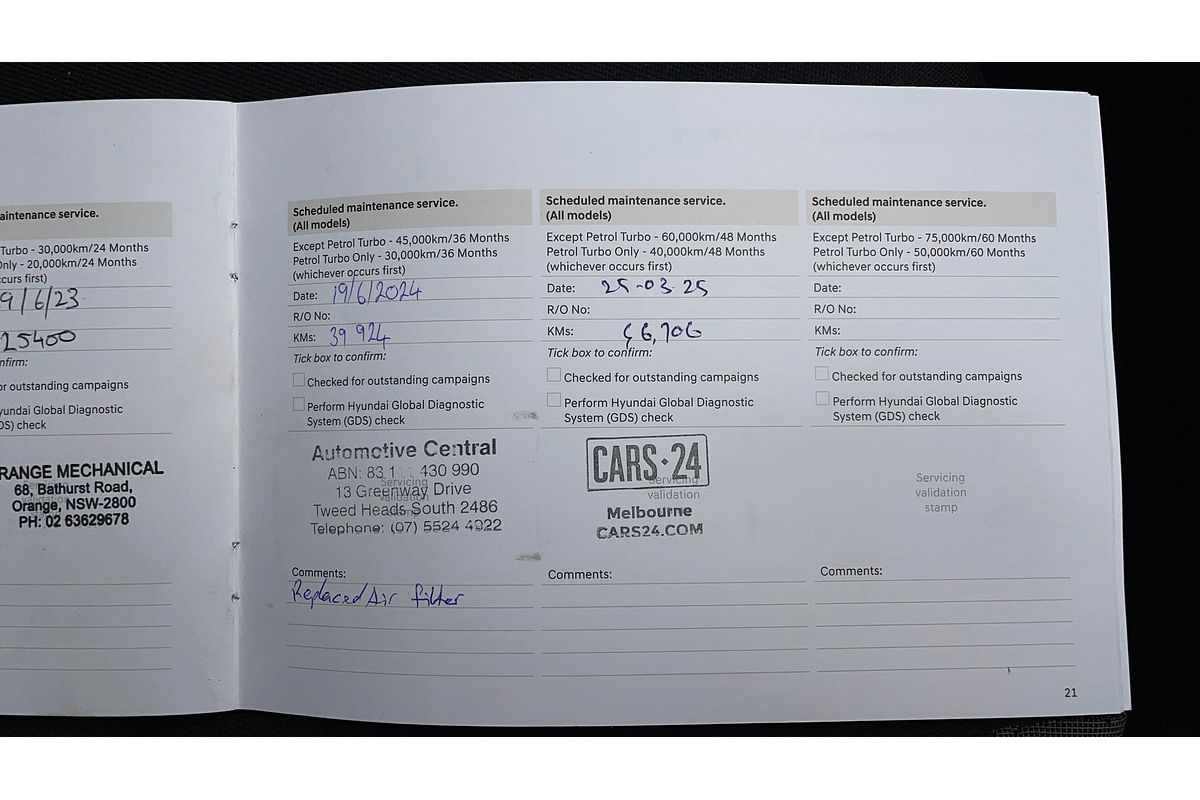 aintenance service.
Turbo - 30,000km/24 Months
Only - 20,000km/24 Months
ccurs first)
9/6/23
25400
nfirm:
or outstanding campaigns
yundai Global Diagnostic
DS) check
RANGE MECHANICAL
68, Bathurst Road,
Orange, NSW-2800
PH: 02 63629678
Scheduled maintenance service.
(All models)
Except Petrol Turbo - 45,000km/36 Months
Petrol Turbo Only - 30,000km/36 Months
(whichever occurs first)
Date: 19/6/2024
R/O No:
KMs: 39 924
Tick box to confirm:
Checked for outstanding campaigns
Perform Hyundai Global Diagnostic
System (GDS) check
Automotive Central
ABN: 83 1 430 990
Servicing
13 Greenway Drive
validation
Tweed Heads South 2486
Telephone: (07) 5524 4922
Comments:
Replaced Air filter
Scheduled maintenance service.
(All models)
Except Petrol Turbo - 60,000km/48 Months
Petrol Turbo Only - 40,000km/48 Months
(whichever occurs first)
Date: 25-03.25
R/O No:
KMs:
Tick box to confirm:
Checked for outstanding campaigns
Perform Hyundai Global Diagnostic
System (GDS) check
CARS·24
Servicing
validation
Melbourne
CARS24.COM
Comments:
Scheduled maintenance service.
(All models)
Except Petrol Turbo - 75,000km/60 Months
Petrol Turbo Only - 50,000km/60 Months
(whichever occurs first)
Date:
R/O No:
KMs:
Tick box to confirm:
Checked for outstanding campaigns
Perform Hyundai Global Diagnostic
System (GDS) check
Servicing
validation
stamp
Comments:
21